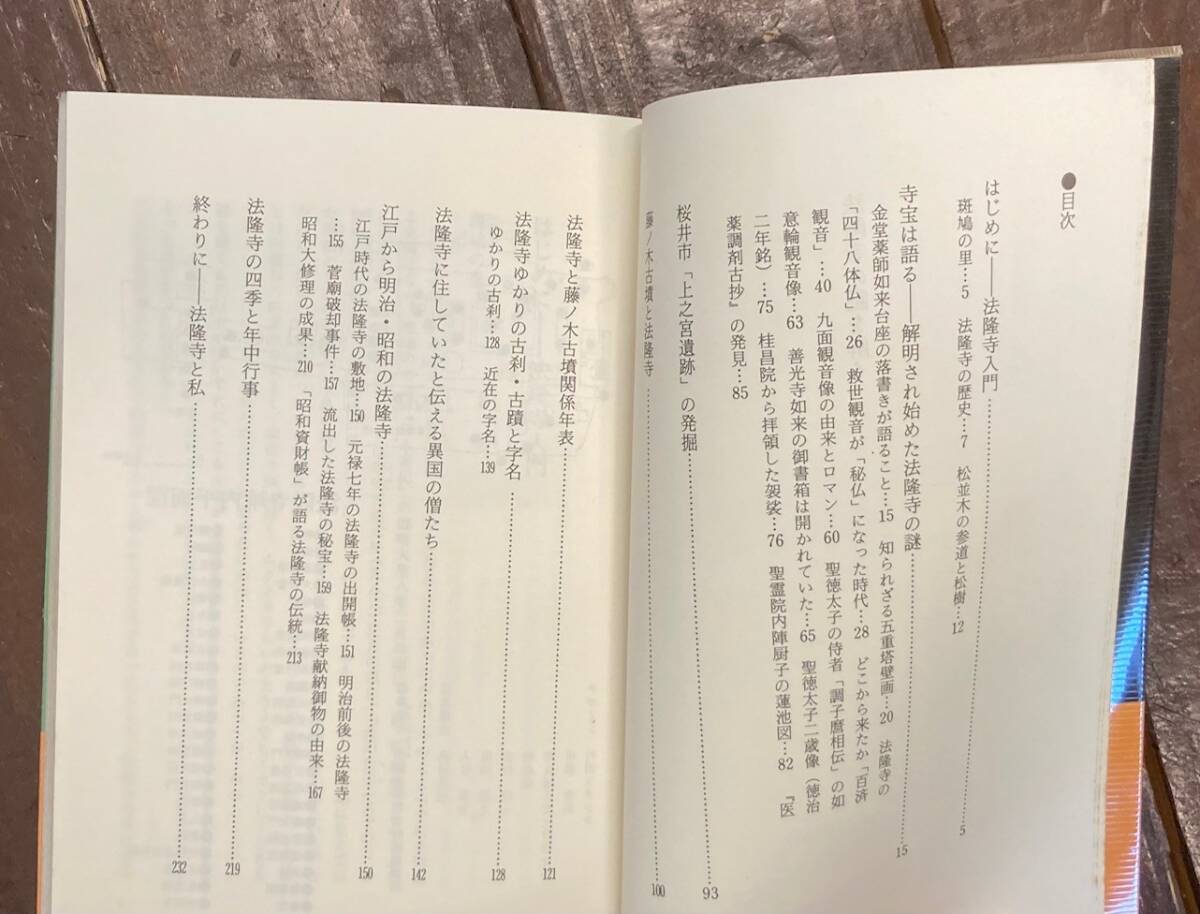 ●目次
はじめに――法隆寺入門……5
斑鳩の里…5　法隆寺の歴史…7　松並木の参道と松樹…12
寺宝は語る――解明され始めた法隆寺の謎……15
金堂薬師如来台座の落書きが語ること…15　知られざる五重塔壁画…20　法隆寺の
「四十八体仏」…26　救世観音が「秘仏」になった時代…28　どこから来たか「百済
観音」…40　九面観音像の由来とロマン…60　聖徳太子の侍者「調子麿相伝」の如
意輪観音像…63　善光寺如来の御書箱は開かれていた…65　聖徳太子二歳像（徳治
二年銘）…75　桂昌院から拝領した袈裟…76　聖霊院内陣厨子の蓮池図…82　『医
薬調剤古抄』の発見…85
桜井市「上之宮遺跡」の発掘……93
藤ノ木古墳と法隆寺……100
法隆寺と藤ノ木古墳関係年表……121
法隆寺ゆかりの古刹・古蹟と字名……128
ゆかりの古刹…128　近在の字名…139
法隆寺に住していたと伝える異国の僧たち……142
江戸から明治・昭和の法隆寺……150
江戸時代の法隆寺の敷地…150　元禄七年の法隆寺の出開帳…151　明治前後の法隆寺
…155　菅廟破却事件…157　流出した法隆寺の秘宝…159　法隆寺献納御物の由来…167
昭和大修理の成果…210　「昭和資財帳」が語る法隆寺の伝統…213
法隆寺の四季と年中行事……219
終わりに――法隆寺と私……232